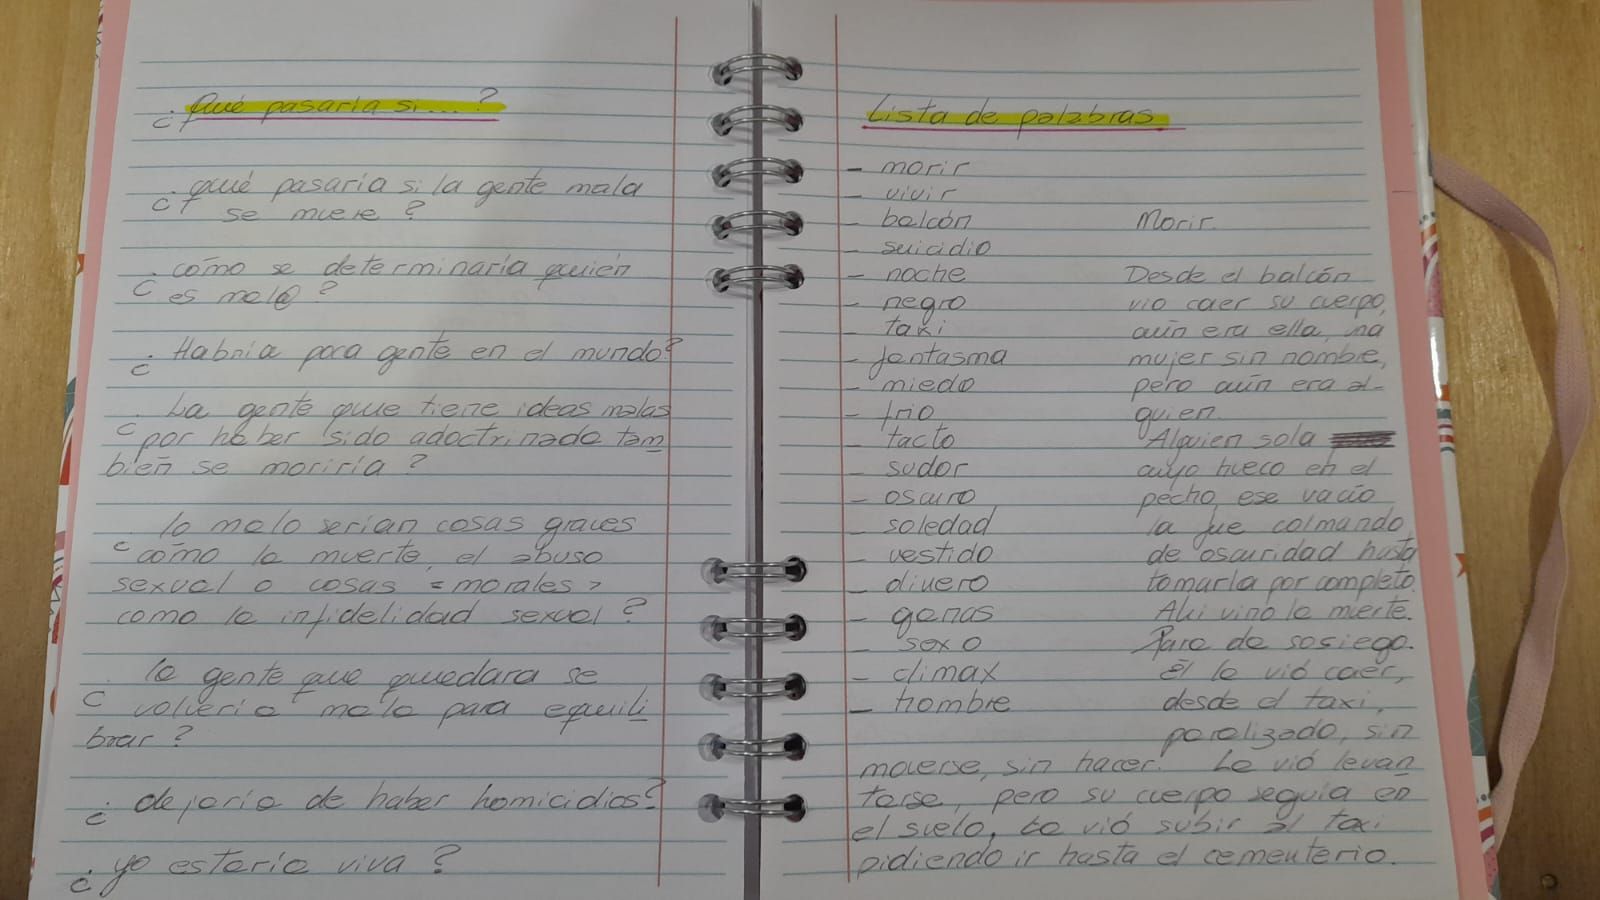 ¿Qué pasaría si....?
¿qué pasaría si la gente mala
se muere?
¿cómo se determinaría quién
es mal@?
¿Habría poca gente en el mundo?
¿La gente que tiene ideas malas
por haber sido adoctrinada tam
bién se moriría?
¿lo malo serían cosas graves
como la muerte, el abuso
sexual o cosas "morales"
como la infidelidad sexual?
¿la gente que quedara se
volvería mala para equili
brar?
¿dejaría de haber homicidios?
¿yo estaría viva?
Lista de palabras
- morir
- vivir
- balcón
- suicidio
- noche
- negro
- taxi
- fantasma
- miedo
- frío
- tacto
- sudor
- oscuro
- soledad
- vestido
- dinero
- ganas
- sexo
- climax
- hombre
Morir.
Desde el balcón
vio caer su cuerpo,
aún era ella, una
mujer sin nombre,
pero aún era al-
guien.
Alguien sola
cuyo hueco en el
pecho ese vacío
la fue colmando
de oscuridad hasta
tomarla por completo.
Ahí vino la muerte.
de sosiego.
Él la vió caer,
desde el taxi,
paralizado, sin
moverse, sin hacer. La vió levan
tarse, pero su cuerpo seguía en
el suelo, la vió subir al taxi
pidiendo ir hasta el cementerio.